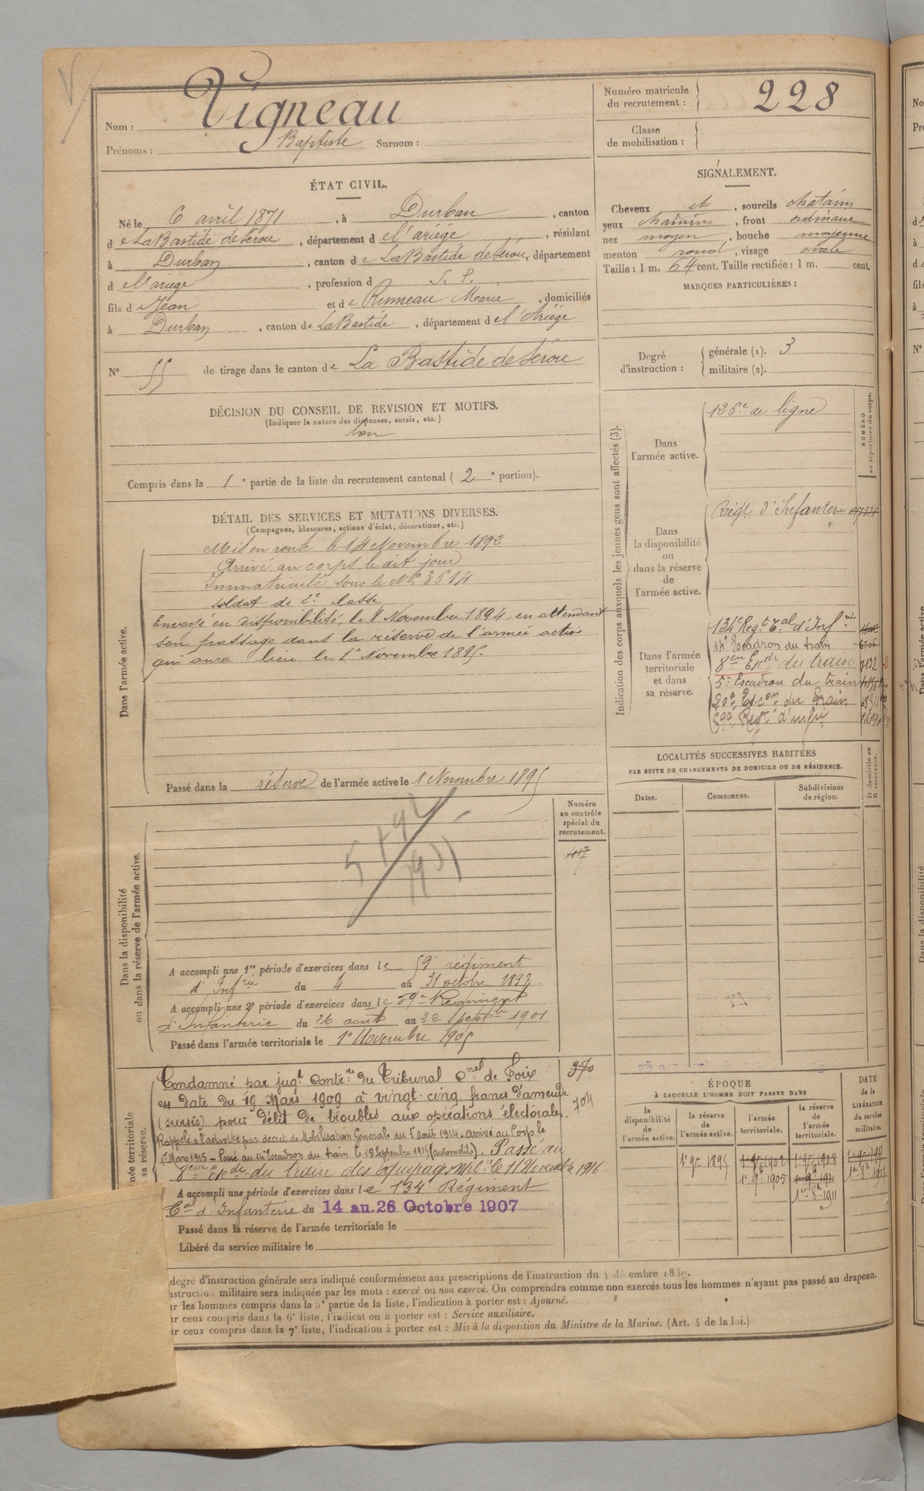 Nom : Vigneau
Prénoms : Baptiste Surnom :
Numéro matricule du recrutement : 228
Classe de mobilisation :
ÉTAT CIVIL.
Né le 6 avril 1871, à Durban, canton
de La Bastide de Sérou, département de l'ariège, résidant
à Durban, canton de La Bastide de Sérou, département
d l'ariège, profession d S. P.
fils de Jean et de Marie, domiciliés
à Durban, canton de La Bastide, département de l'Ariège
N° 55 de tirage dans le canton de La Bastide de Sérou
SIGNALEMENT.
Cheveux et, sourcils chatains
yeux chatains, front ordinaire
nez moyen, bouche moyenne
menton rond, visage ovale
Taille : 1 m. 64 cent. Taille rectifiée : 1 m. cent.
MARQUES PARTICULIÈRES :
Degré d'instruction : générale (1). 3
militaire (2).
DÉCISION DU CONSEIL DE REVISION ET MOTIFS.
(Indiquer la nature des dispenses, sursis, etc.)
bon
Compris dans la 1e partie de la liste du recrutement cantonal (2e portion).
DÉTAIL DES SERVICES ET MUTATIONS DIVERSES.
(Campagnes, blessures, actions d'éclat, décorations, etc.)
Dans l'armée active.
Mis en route le 14 Novembre 1892
Arrivé au corps le dit jour
Immatriculé sous le No 3614
soldat de 2e classe
Envoyé en disponibilité, le 8 Novembre 1894 en attendant
son passage dans la réserve de l'armée active
qui aura lieu le 1er Novembre 1895.
Passé dans la réserve de l'armée active le 1 Novembre 1895
Indication des corps auxquels les jeunes gens sont affectés (3).
NUMÉRO au répertoire du corps.
Dans l'armée active.
126e de ligne
Dans la disponibilité ou dans la réserve de l'armée active.
Régt d'Infanterie
Dans l'armée territoriale et dans sa réserve.
134e Régt Tal d'Infie
14e Escadron du train
8eme Eon du train
5e Escadron du train
20e Escon du Train
59e Régt d'infie
LOCALITÉS SUCCESSIVES HABITÉES
PAR SUITE DE CHANGEMENTS DE DOMICILE OU DE RÉSIDENCE.
Dates. Communes. Subdivisions de région. D domicile ou R résidence.
Dans la disponibilité ou dans la réserve de l'armée active.
Numéro au contrôle spécial du recrutement.
A accompli une 1re période d'exercices dans le 59e régiment
d'Infie du 4 au 31 octobre 1897
A accompli une 2e période d'exercices dans le 59e Régiment
d'Infanterie du 26 août au 22 Septbre 1901
Passé dans l'armée territoriale le 1er Novembre 1905
370
704
Condamné par jugt contre du Tribunal Cnel de Foix
en date du 19 Mars 1909 à vingt-cinq francs d'amende
(sursis) pour délit de troubles aux opérations électorales.
Rappelé à l'activité par décret de Mobilisation Générale du 1er août 1914. arrivé au Corps le
Mars 1915 - Passé au 14e Escadron du train le 18 Septembre 1915 (automobiles). Passé au
8eme Eon du train des équipages Mil. le 11 Novembre 1916
A accompli une période d'exercices dans le 134e Régiment
Tal d'Infanterie du 14 au 26 Octobre 1907
Passé dans la réserve de l'armée territoriale le
Libéré du service militaire le
née territoriale
sa réserve.
ÉPOQUE
À LAQUELLE L'HOMME DOIT PASSER DANS
la disponibilité de l'armée active. la réserve de l'armée active. l'armée territoriale. la réserve de l'armée territoriale.
DATE de la LIBÉRATION du service militaire.
1er 9bre 1895
1er 9bre 1905
degré d'instruction générale sera indiqué conformément aux prescriptions de l'instruction du 4 décembre 1889.
instruction militaire sera indiquée par les mots : exercé ou non exercé. On comprendra comme non exercés tous les hommes n'ayant pas passé au drapeau.
ur les hommes compris dans la 5e partie de la liste, l'indication à porter est : Ajourné.
ur ceux compris dans la 6e liste, l'indication à porter est : Service auxiliaire.
ur ceux compris dans la 7e liste, l'indication à porter est : Mis à la disposition du Ministre de la Marine. (Art. 4 de la loi.)